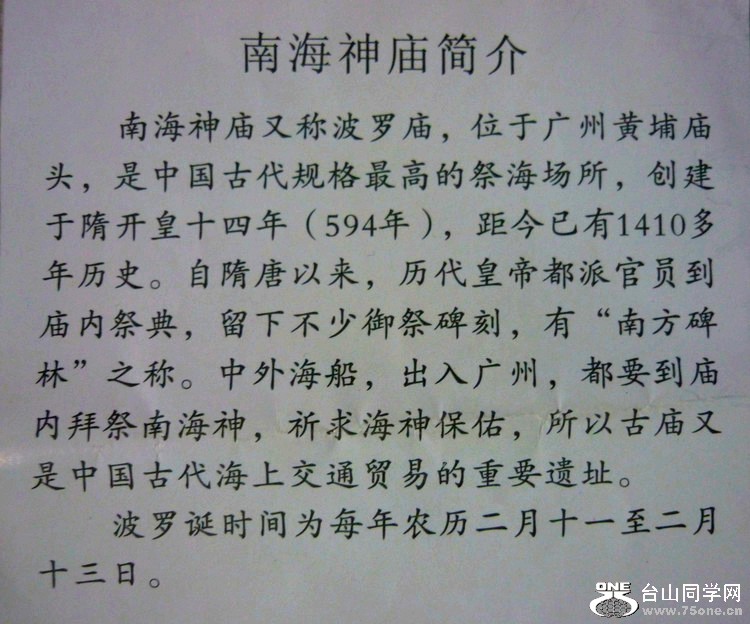 南海神庙简介
南海神庙又称波罗庙，位于广州黄埔庙
头，是中国古代规格最高的祭海场所，创建
于隋开皇十四年（594年），距今已有1410多
年历史。自隋唐以来，历代皇帝都派官员到
庙内祭典，留下不少御祭碑刻，有“南方碑
林”之称。中外海船，出入广州，都要到庙
内拜祭南海神，祈求海神保佑，所以古庙又
是中国古代海上交通贸易的重要遗址。
波罗诞时间为每年农历二月十一至二月
十三日。
ONE 台山同学网
www.75one.com.cn